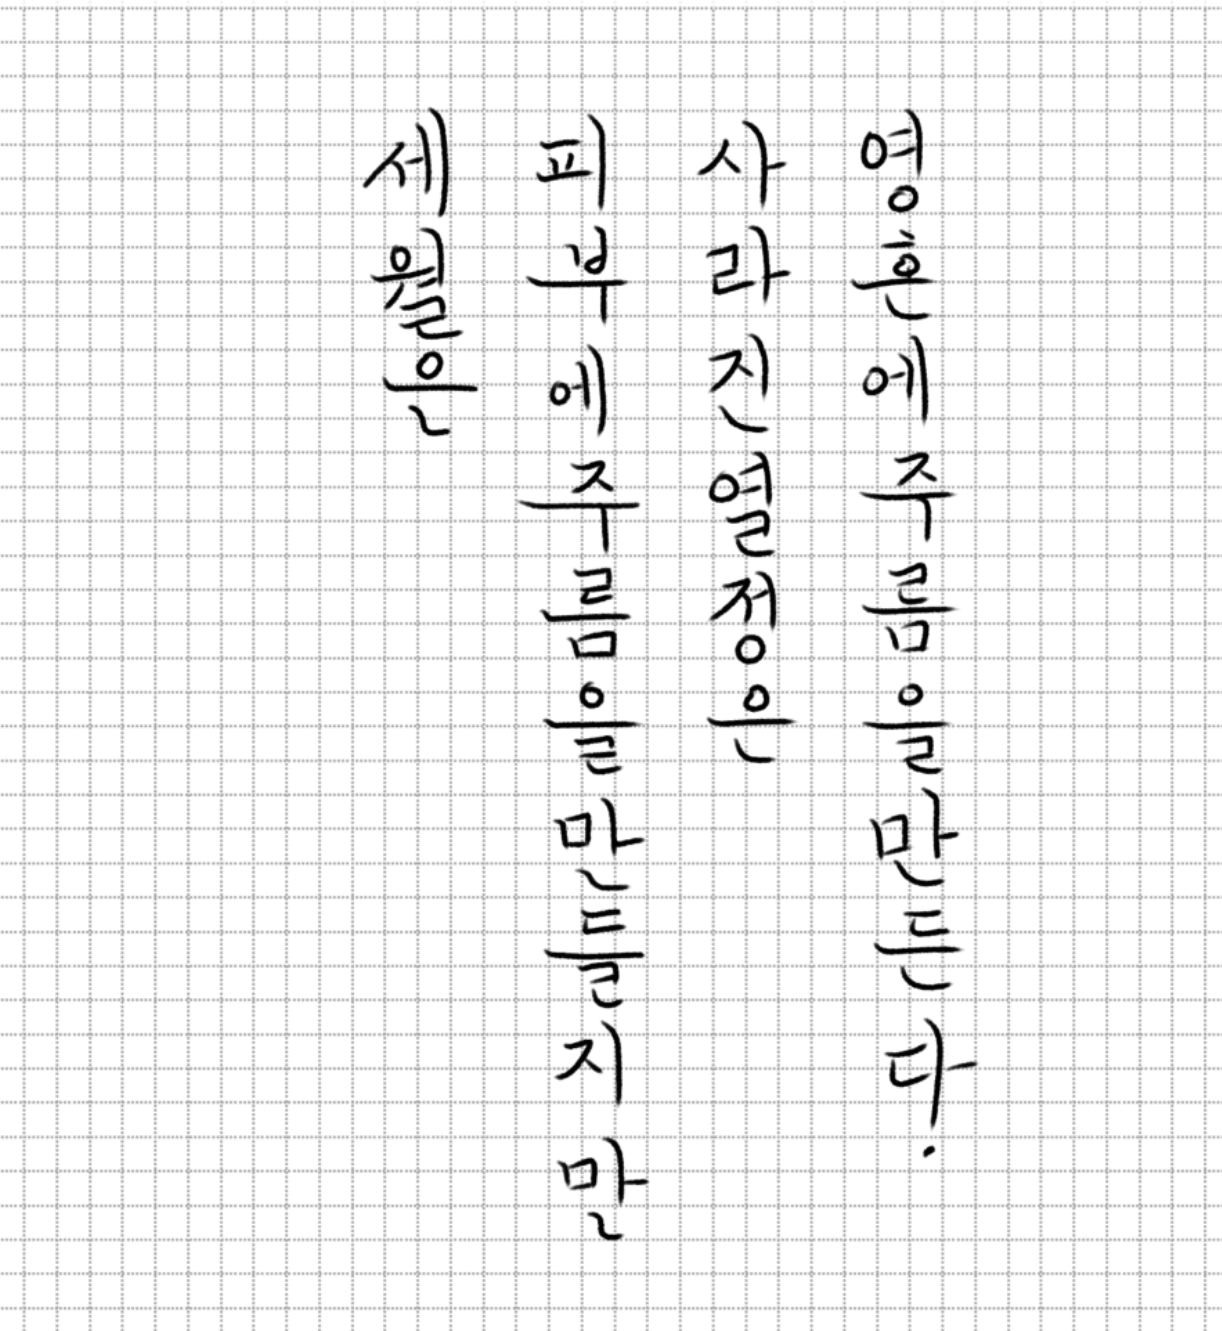 세월은
피부에주름을만들지만
사라진열정은
영혼에주름을만든다.